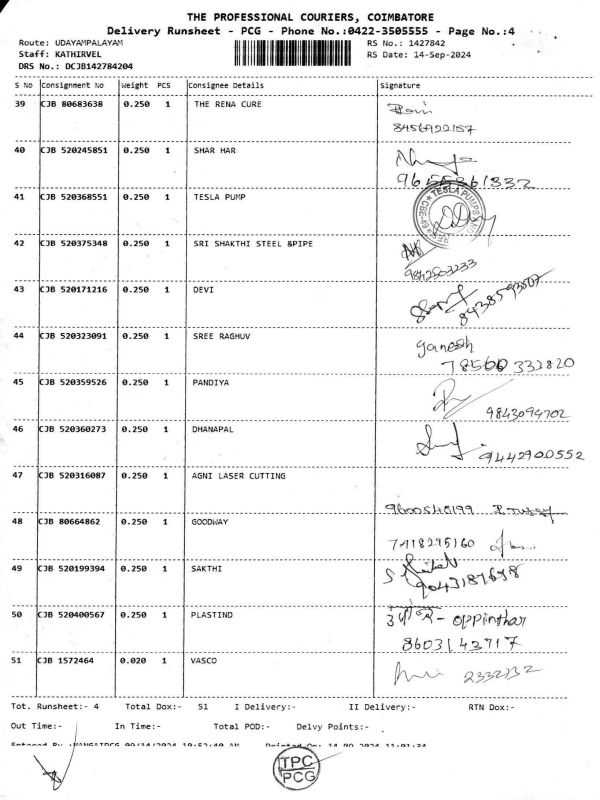 THE PROFESSIONAL COURIERS, COIMBATORE
Delivery Runsheet - PCG - Phone No.:0422-3505555 - Page No.:4
Route: UDAYAMPALAYAM RS No.: 1427842
Staff: KATHIRVEL RS Date: 14-Sep-2024
DRS No.: DCJB142784204
S No Consignment No Weight PCS Consignee Details Signature
39 CJB 80683638 0.250 1 THE RENA CURE
8456922157
40 CJB 520245851 0.250 1 SHAR HAR
9655361332
41 CJB 520368551 0.250 1 TESLA PUMP
TESLA PUMPS
42 CJB 520375348 0.250 1 SRI SHAKTHI STEEL &PIPE
9842503233
43 CJB 520171216 0.250 1 DEVI
44 CJB 520323091 0.250 1 SREE RAGHUV
ganesh
78560 332820
45 CJB 520359526 0.250 1 PANDIYA
9843094702
46 CJB 520360273 0.250 1 DHANAPAL
9442900552
47 CJB 520316087 0.250 1 AGNI LASER CUTTING
48 CJB 80664862 0.250 1 GOODWAY
49 CJB 520199394 0.250 1 SAKTHI
50 CJB 520400567 0.250 1 PLASTIND
8603143717
51 CJB 1572464 0.020 1 VASCO
2332232
Tot. Runsheet:- 4 Total Dox:- 51 I Delivery:- II Delivery:- RTN Dox:-
Out Time:- In Time:- Total POD:- Delvy Points:-
Entered By :MANGAIPCG 09/14/2024 10:52:40 AM Printed On: 14-09-2024 11:01:34
TPC
PCG